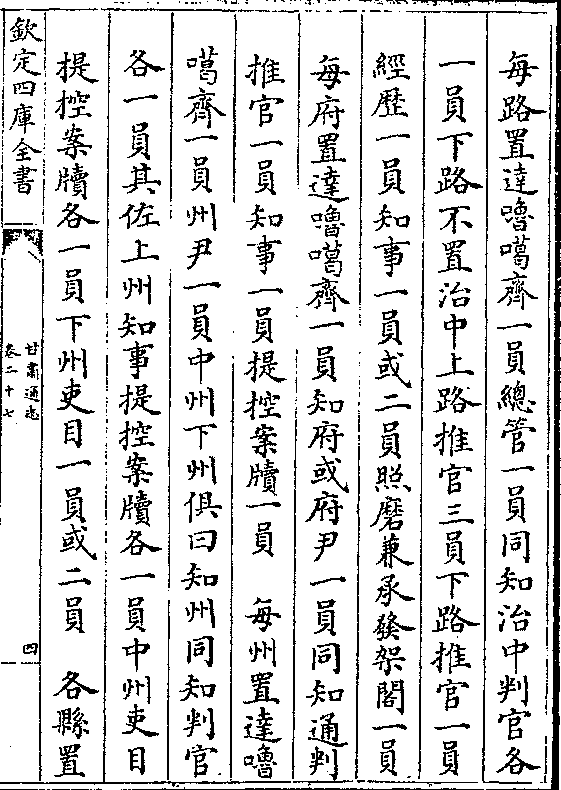 每路置達嚕噶齊一員總管一員同知治中判官各
一員下路不置治中上路推官三員下路推官一員
經歷一員知事一員或二員照磨兼承發架閣一員
每府置達嚕噶齊一員知府或府尹一員同知通判
推官一員知事一員提控案牘一員　每州置達嚕
噶齊一員州尹一員中州下州俱曰知州同知判官
各一員其佐上州知事提控案牘各一員中州吏目
提控案牘各一員下州吏目一員或二員　各縣置
欽定四庫全書
甘肅通志
卷二十七
四